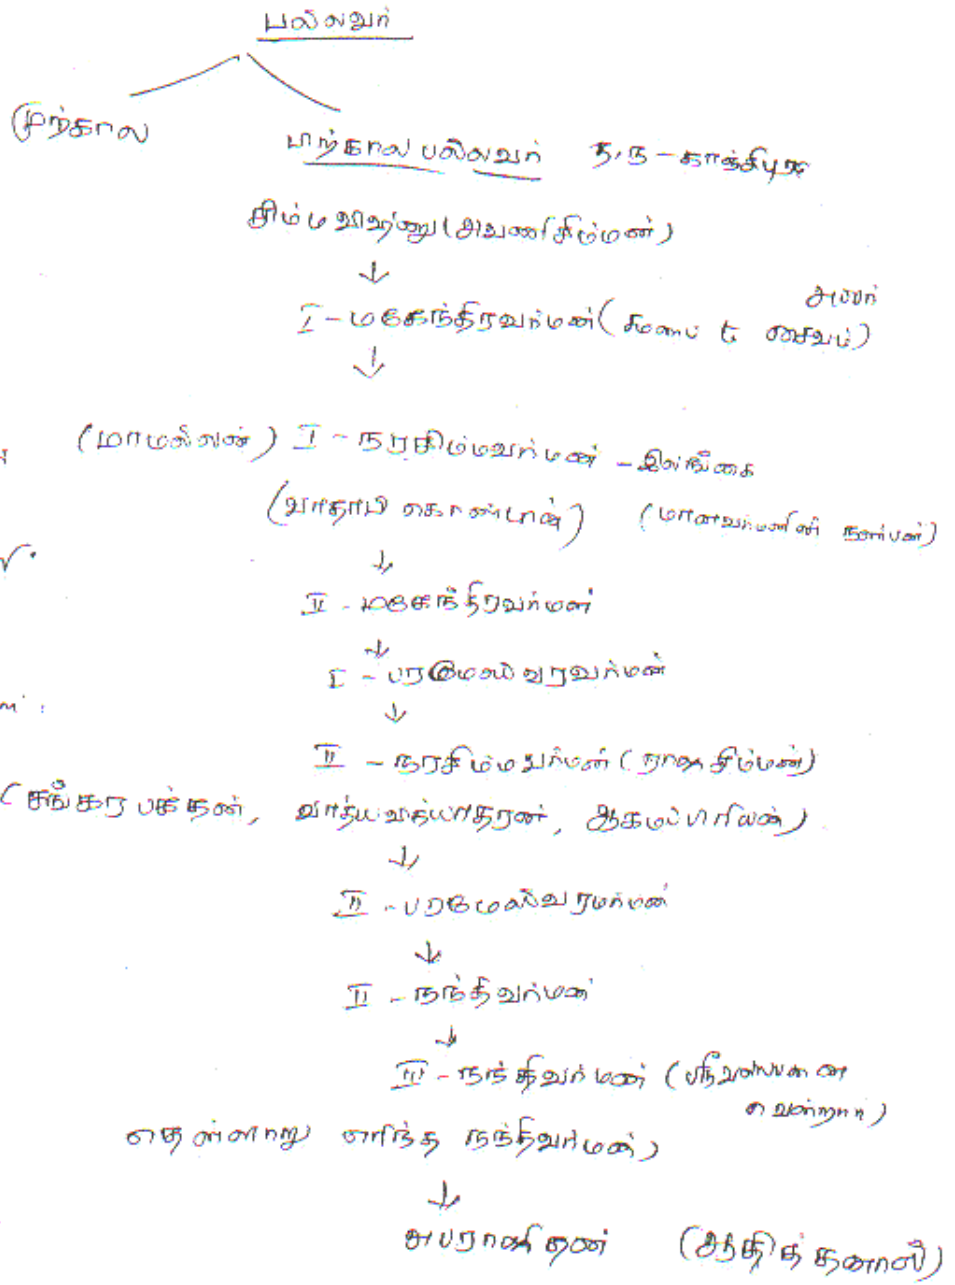 பல்லவர்
முற்கால
பிற்கால பல்லவர் த.ந - காஞ்சிபுரம்
சிம்மவிஷ்ணு (அவனிசிம்மன்)
↓
அப்பர்
I - மகேந்திரவர்மன் (சமணம் to சைவம்)
↓
(மாமல்லன்) I - நரசிம்மவர்மன் - இலங்கை
(வாதாபி கொண்டான்) (மானவர்மனின் நண்பன்)
↓
II - மகேந்திரவர்மன்
↓
I - பரமேஸ்வரவர்மன்
↓
II - நரசிம்மவர்மன் (ராஜசிம்மன்)
(சங்கரபக்தன், வாத்யவித்யாதரன், ஆகமப்பிரியன்)
↓
II - பரமேஸ்வரமர்மன்
↓
II - நந்திவர்மன்
↓
III - நந்திவர்மன் (
வென்றார்)
தெள்ளாறு எரிந்த நந்திவர்மன்)
↓
அபராஜிதன்